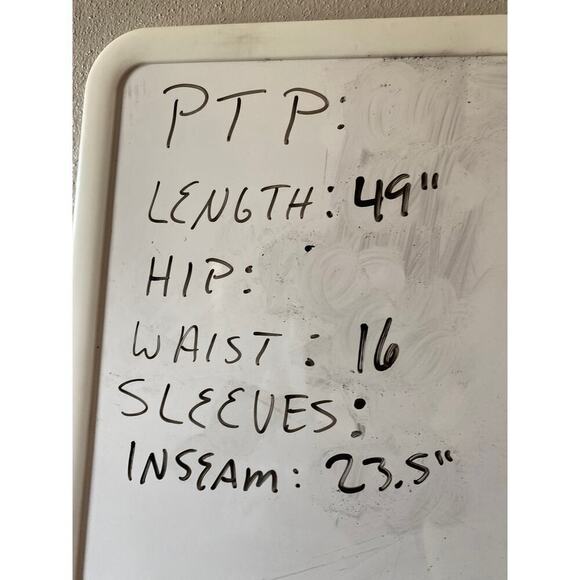 PTP:
LENGTH: 49"
HIP:
WAIST: 16
SLEEVES:
INSEAM: 23.5"